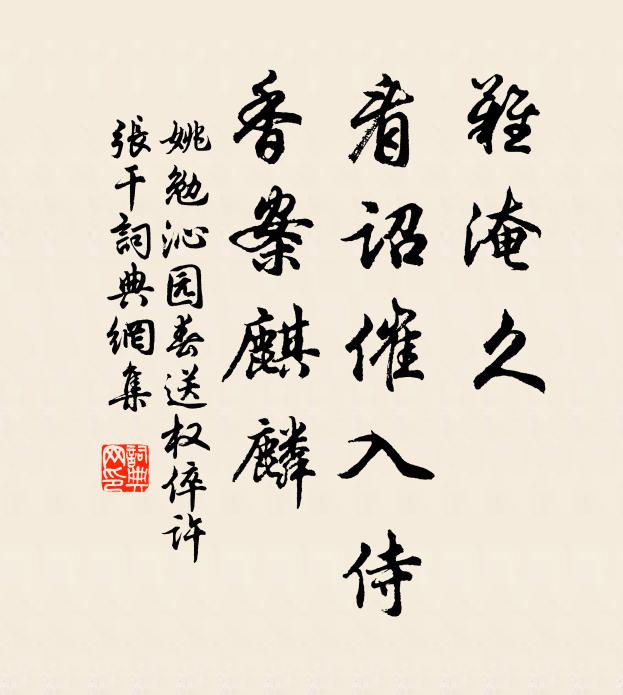 難淹久
看詔催入侍
香案麒麟
姚勉沁园春送权倅許
張干詞典網集
詞典
网印